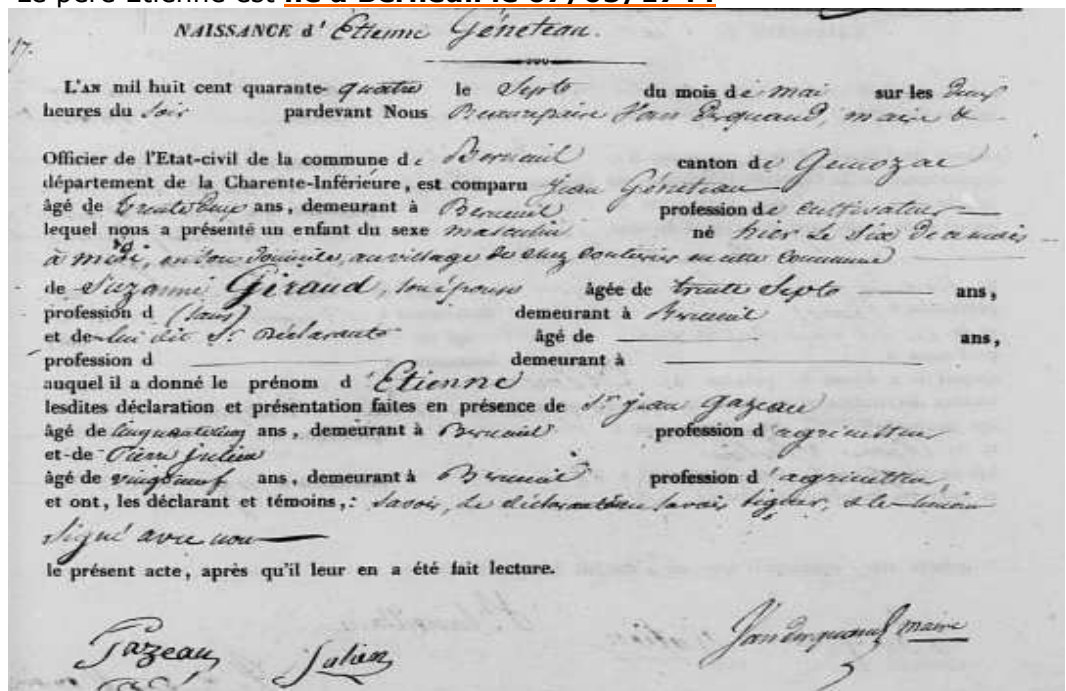 Le père Etienne est né à Berneuil le 07/05/1844
NAISSANCE d' Etienne Géneteau.
L'AN mil huit cent quarante-quatre le Sept du mois de mai sur les deux
heures du Soir pardevant Nous maire &
Officier de l'Etat-civil de la commune de Berneuil canton de Gemozac
département de la Charente-Inférieure, est comparu Jean Géneteau
âgé de ans, demeurant à Berneuil profession de cultivateur
lequel nous a présenté un enfant du sexe masculin né hier le six de ce mois
à midi, en son domicile, au village de chez en cette commune
de Suzanne Giraud, son épouse âgée de trente Sept ans,
profession d (sans) demeurant à Berneuil
et de lui dit Sr. Déclarant âgé de ans,
profession d demeurant à
auquel il a donné le prénom d' Etienne
lesdites déclaration et présentation faites en présence de Sr jean Gazeau
âgé de ans, demeurant à Berneuil profession d'agriculteur
et de Pierre julien
âgé de ans, demeurant à Berneuil profession d'agriculteur,
et ont, les déclarant et témoins,: Savoir, le déclarant Savoir signer, & le témoin
Signé avec nous
le présent acte, après qu'il leur en a été fait lecture.
Gazeau Julien maire